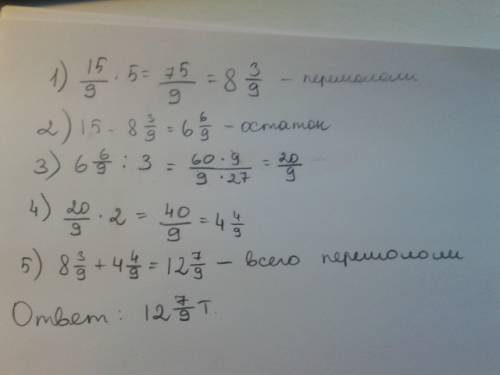 1) 15/9 · 5 = 75/9 = 8 3/9 – перемололи
2) 15 - 8 3/9 = 6 6/9 – остаток
3) 6 6/9 : 3 = 60 · 9 / 9 · 27 = 20/9
4) 20/9 · 2 = 40/9 = 4 4/9
5) 8 3/9 + 4 4/9 = 12 7/9 – всего перемололи
Ответ: 12 7/9 т.